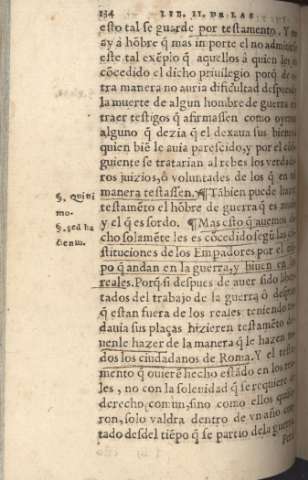 134 LIB. II. DE LAS
esto tal se guarde por testamento. Y no
ay à hõbre q̃ mas importe el no admitir
este tal exẽplo q̃ aquellos à quien les es
cõcedido el dicho priuilegio porq̃ de o
tra manera no auria dificultad despues d
la muerte de algun hombre de guerra en
traer testigos q̃ afirmassen como oyeron
alguno q̃ dezia q̃ el dexaua sus bienes
quien biẽ le auia parescido, y por el cõsi
guiente se tratarian al rebes los verdade
ros juizios, ò voluntades de los q̃ en tal
manera testassen. ¶Tãbien puede hazer
§. quini
testamẽto el hõbre de guerra q̃ es mudo
mo.
y el q̃ es sordo. ¶Mas esto q̃ auemos di
§. sed ha
ctenus.
cho solamẽte les es cõcedido segũ las cõ
stituciones de los Empadores por el tiẽ
po q̃ andan en la guerra, y biuen en los
reales. Porq̃ si despues de auer sido liber
tados del trabajo de la guerra ò despues
q̃ estan fuera de los reales teniendo to
dauia sus plaças hizieren testamẽto con
uenle hazer de la manera q̃ le hazen to
dos los ciudadanos de Roma. Y el testa
mento q̃ ouierẽ hecho estãdo en los rea
les, no con la solenidad q̃ se requiere de
derecho comun, sino como ellos quisie
ron, solo valdra dentro de vn año con
tado desdel tiẽpo q̃ se partio de la guerra